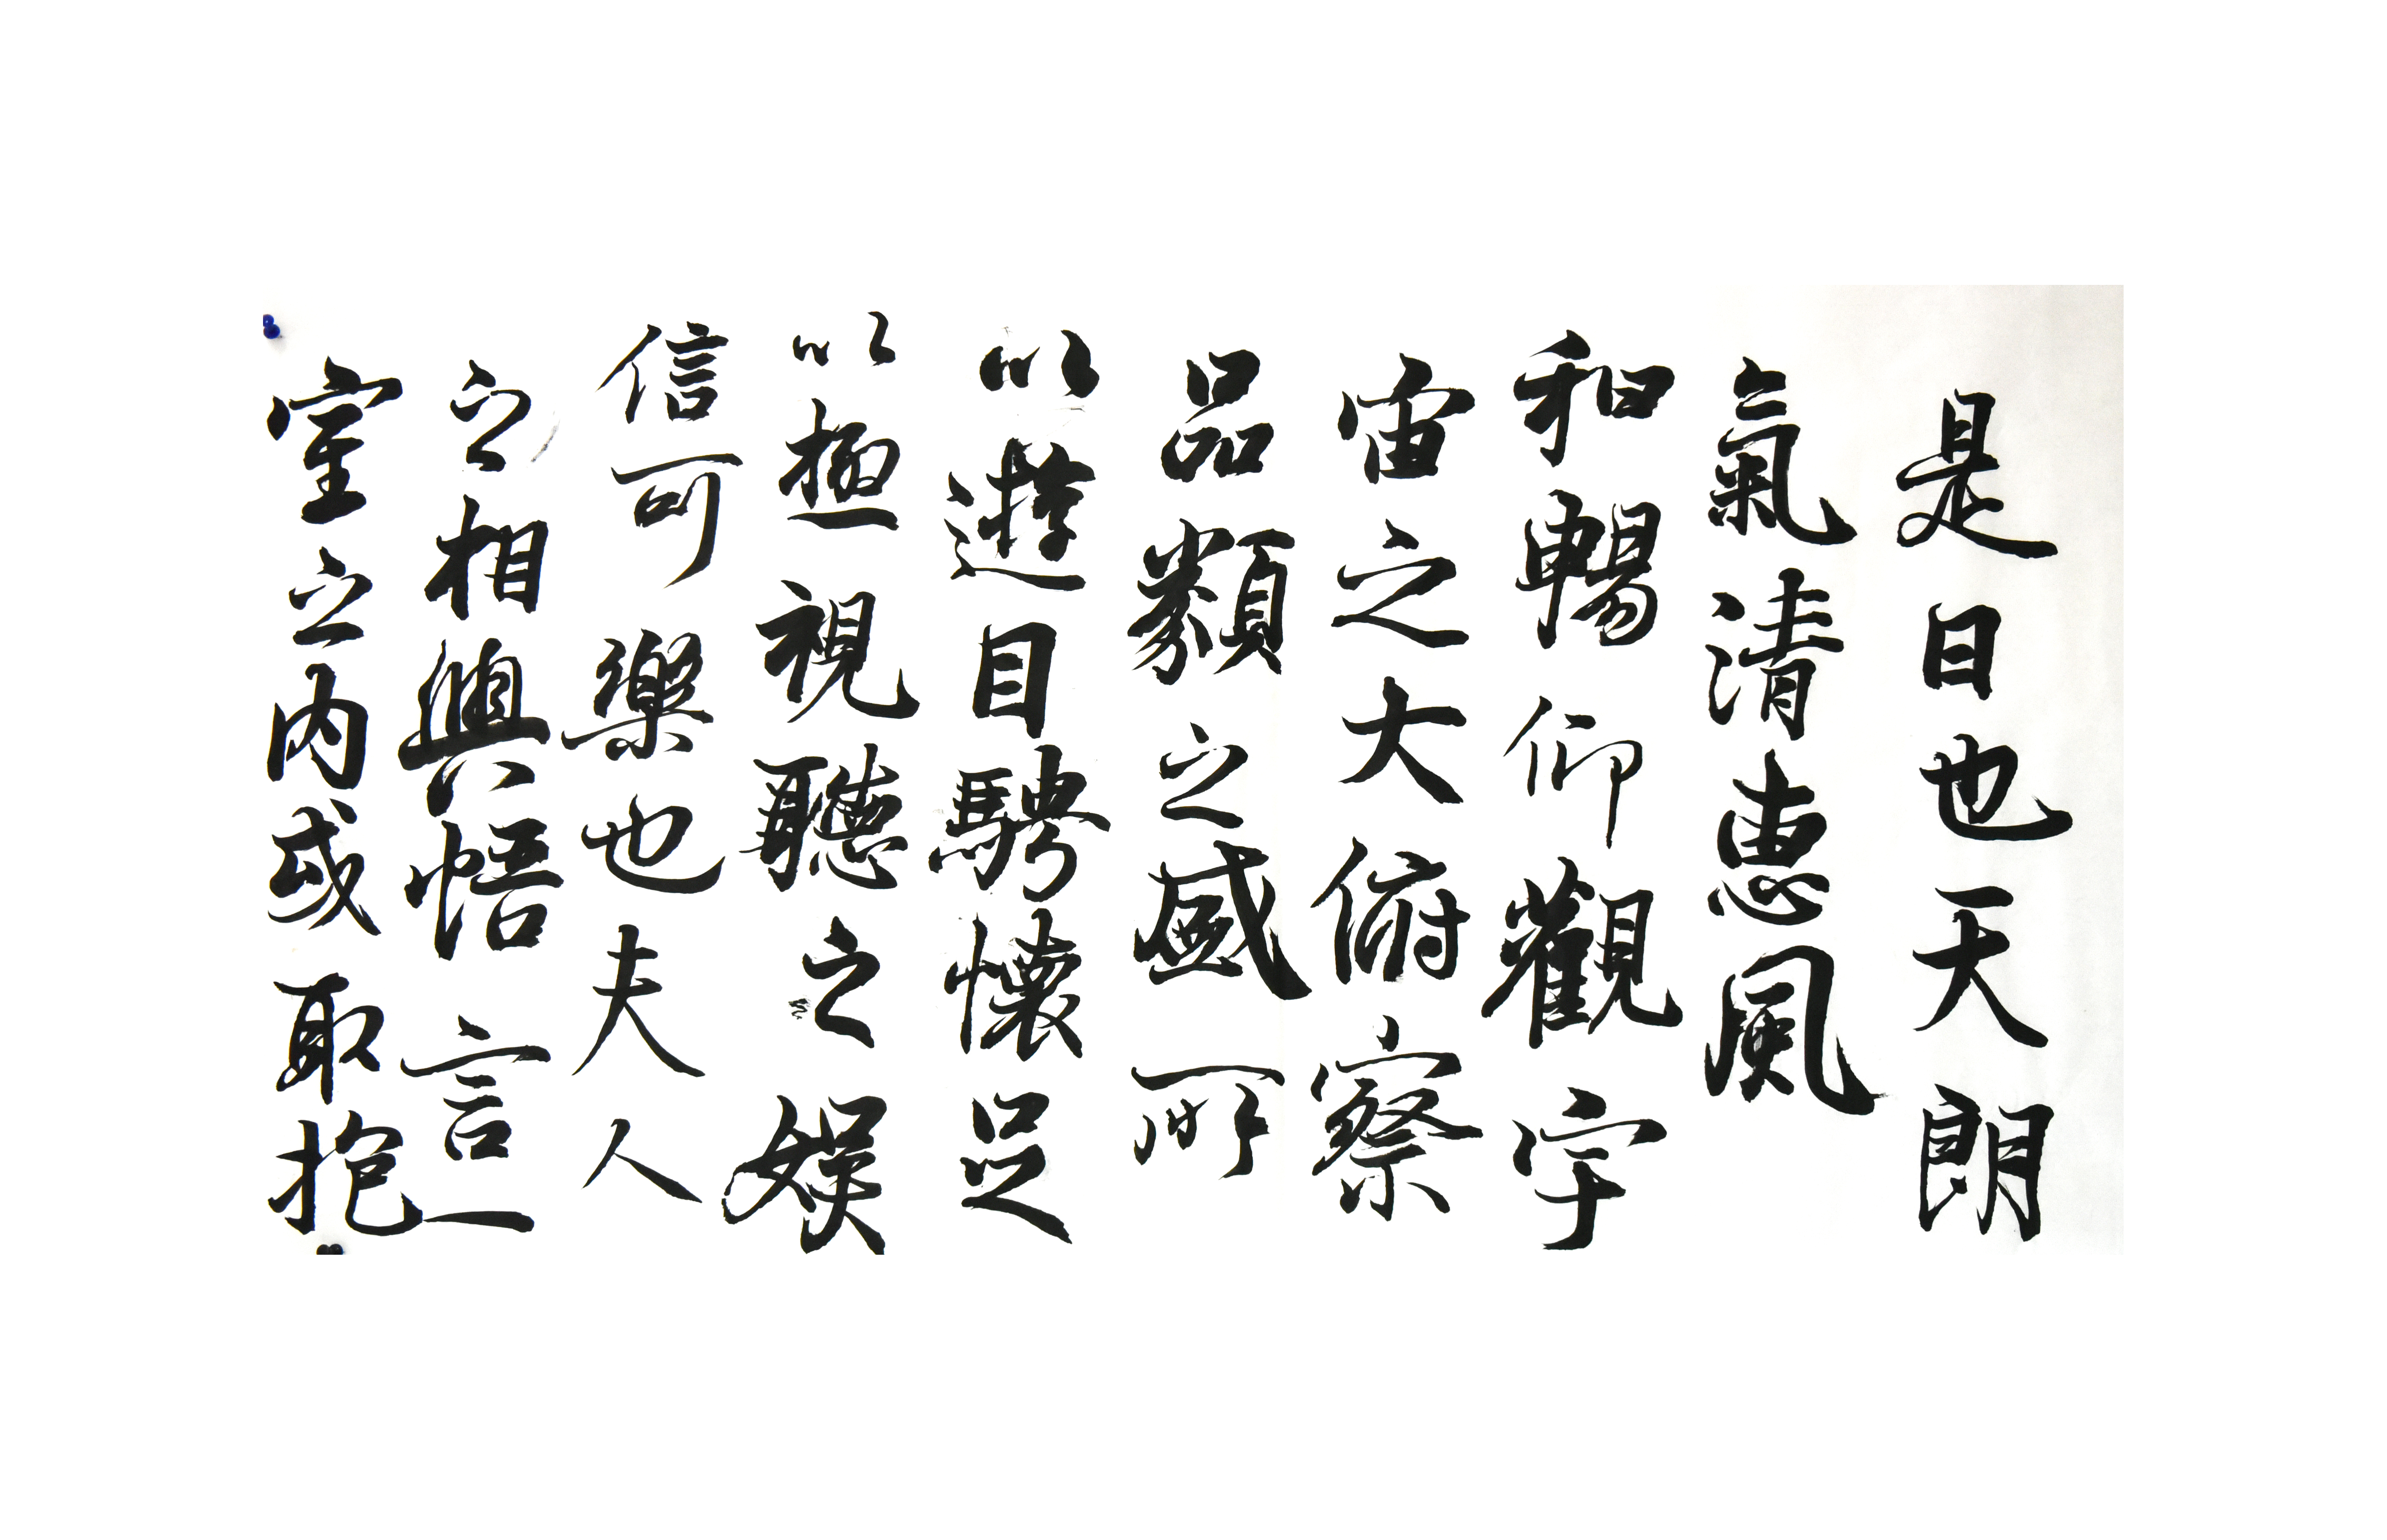 是日也天朗
氣清惠風
和暢仰觀宇
宙之大俯察
品類之盛所
以遊目騁懷足
以極視聽之娛
信可樂也夫人
之相與悟言一
室之内或取抱